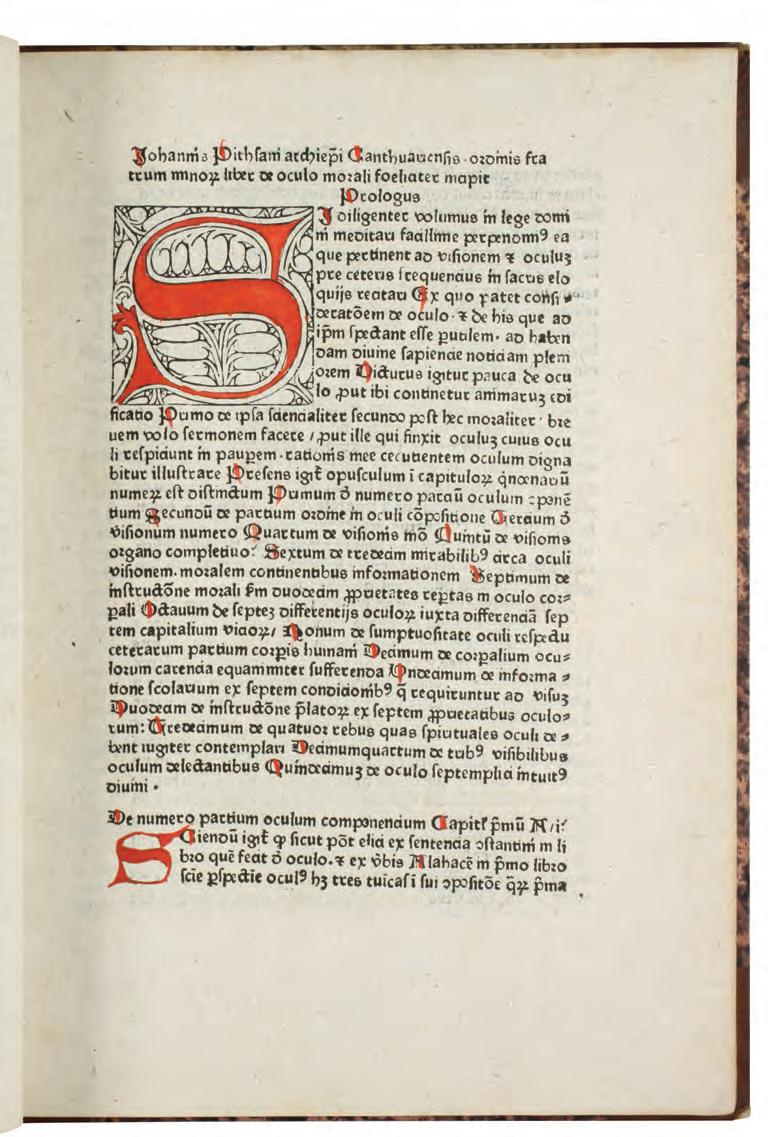 Johannis Pithsani archiep̄i Canthuariensis · ordinis fra
trum minoꝝ liber de oculo morali foeliciter incipit
Prologus
SI diligenter volumus in lege domi
ni meditari facillime perpendimꝰ ea
que pertinent ad visionem ⁊ oculuꝫ
pre ceteris frequencius in sacris elo
quijs recitari Ex quo patet consi
deracōem de oculo · ⁊ de his que ad
ip̄m spectant esse ꝑutilem · ad haben
dam diuine sapiencie noticiam pleni
orem Dicturus igitur pauca de ocu
lo ꝓut ibi continetur animaruꝫ edi
ficatio Primo de ipsa sciencialiter secundo post hec moraliter · bre
uem volo sermonem facere / ꝓut ille qui finxit oculuꝫ cuius ocu
li respiciunt in paupem · rationis mee cecutientem oculum digna
bitur illustrare Presens igit̄ opusculum ī capituloꝝ q̇ndenariū
numeꝝ est distinctum Primum d̄ numero parciū oculum ↄponē
tium Secundū de partium ordine in oculi cōpositione Tercium d̄
visionum numero Quartum de visionis mō Quintū de visionis
organo completiuo: Sextum de tredecim mirabilibꝰ circa oculi
visionem · moralem continentibus informationem Septimum de
instructōne morali ẜm duodecim ꝓprietates reꝑtas in oculo cor⸗
ꝑali Octauum de septeꝫ differentijs oculoꝝ iuxta differenciā sep
tem capitalium vicioꝝ / Nonum de sumptuositate oculi respectu
ceterarum partium corꝑis humani Decimum de corꝑalium ocu⸗
lorum carencia equanimiter sufferenda Undecimum de informa⸗
tione scolarium ex septem condicionibꝰ q̄ requiruntur ad visuꝫ
Duodecim de instructōne p̄latoꝝ ex septem ꝓprietatibus oculo⸗
rum: Tredecimum de quatuor rebus quas spirituales oculi de⸗
bent iugiter contemplari Decimumquartum de tribꝰ visibilibus
oculum delectantibus Quindecimuꝫ de oculo septemplici intuitꝰ
diuini ·
De numero partium oculum componencium Capitł p̄mū A /i:
SCiendū igit̄ ꝙ sicut pōt elici ex sentencia ↄstantini in li
bro quē fecit d̄ oculo · ⁊ ex v̄bis Alahacē in p̄mo libro
scīe ꝑspectīe oculꝰ hꝫ tres tuīcas ī sui ↄpositōe q̄ꝝ p̄ma